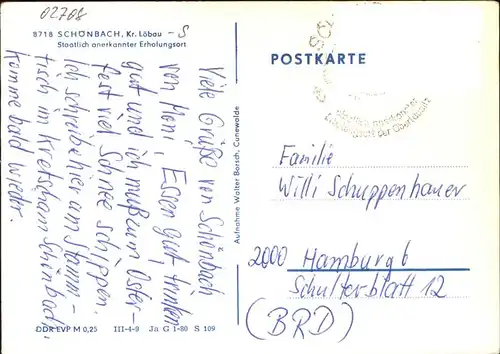 02708
8718 SCHÖNBACH, Kr. Löbau - S
Staatlich anerkannter Erholungsort
Viele Grüße von Schönbach
von Moni, Essen gut, trinken
gut und ich muß zum Oster-
fest viel Schnee schippen.
Ich schreibe hier am Stamm-
tisch im Kretscham Schönbach,
komme bald wieder.
DDR EVP M 0,25 III-4-9 Ja G 1-80 S 109
Aufnahme Walter Bersch, Cunewalde
POSTKARTE
staatlich anerkannter
Erholungsort der Oberlausitz
Familie
Willi Schuppenhauer
2000 Hamburg 6
Schulterblatt 12
(BRD)